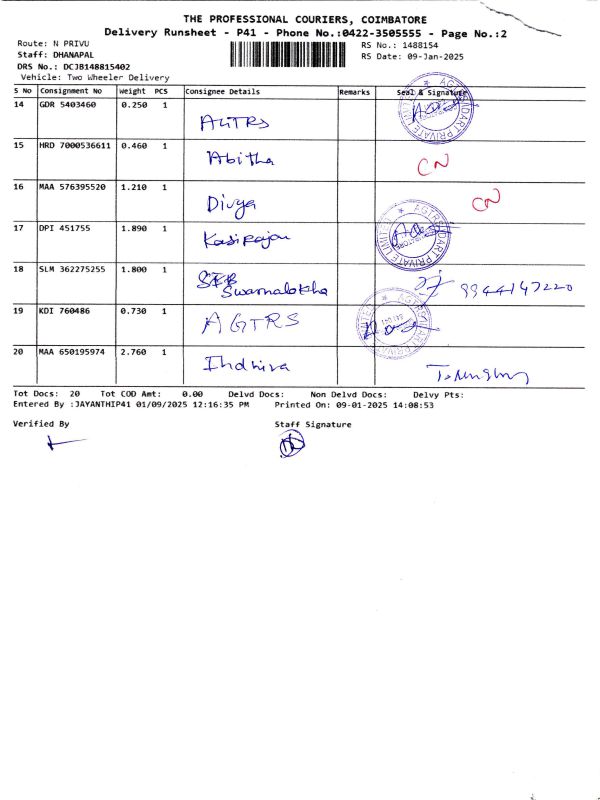 THE PROFESSIONAL COURIERS, COIMBATORE
Delivery Runsheet - P41 - Phone No.:0422-3505555 - Page No.:2
Route: N PRIVU RS No.: 1488154
Staff: DHANAPAL RS Date: 09-Jan-2025
DRS No.: DCJB148815402
Vehicle: Two Wheeler Delivery
S No Consignment No Weight PCS Consignee Details Remarks Seal & Signature
14 GDR 5403460 0.250 1 AGTRS
15 HRD 7000536611 0.460 1 Abitha CN
16 MAA 576395520 1.210 1 Divya CN
17 DPI 451755 1.890 1 Kasirajan
18 SLM 362275255 1.800 1 Swarnalatha 9944147220
19 KDI 760486 0.730 1 AGTRS
20 MAA 650195974 2.760 1 Indhira
Tot Docs: 20 Tot COD Amt: 0.00 Delvd Docs: Non Delvd Docs: Delvy Pts:
Entered By :JAYANTHIP41 01/09/2025 12:16:35 PM Printed On: 09-01-2025 14:08:53
Verified By Staff Signature